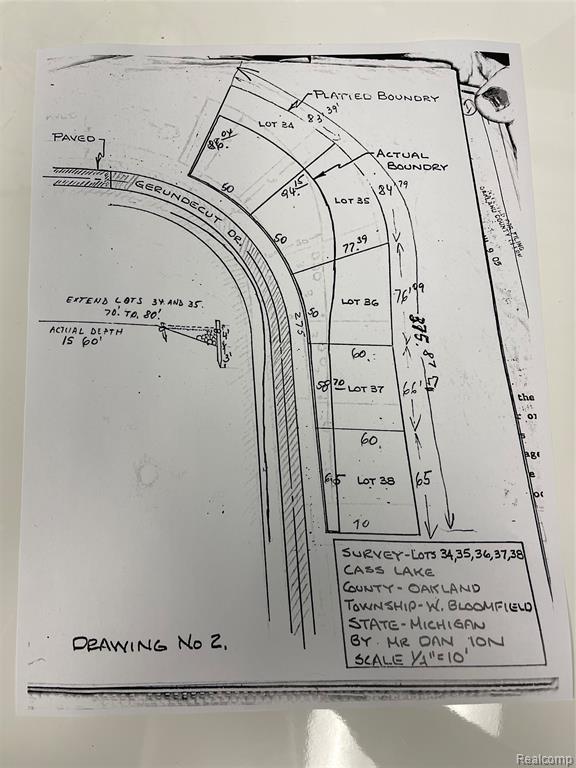 PLATTED BOUNDRY
LOT 34
83.39'
PAVED
86.04
ACTUAL
BOUNDRY
GERUNDECUT DR.
94.15
LOT 35
84.79
50
50
77.39
EXTEND LOTS 34 AND 35.
70' TO 80'
ACTUAL DEPTH
IS 60'
50
275
LOT 36
76'
375.
87
60.
58.70
LOT 37
66'
60.
65
LOT 38
65
70
SURVEY-LOTS 34,35,36,37,38
CASS LAKE
COUNTY-OAKLAND
TOWNSHIP-W. BLOOMFIELD
STATE-MICHIGAN
BY MR DAN ION
SCALE 1/4"=10'
DRAWING No 2.
OAKLAND COUNTY
the
Realcomp